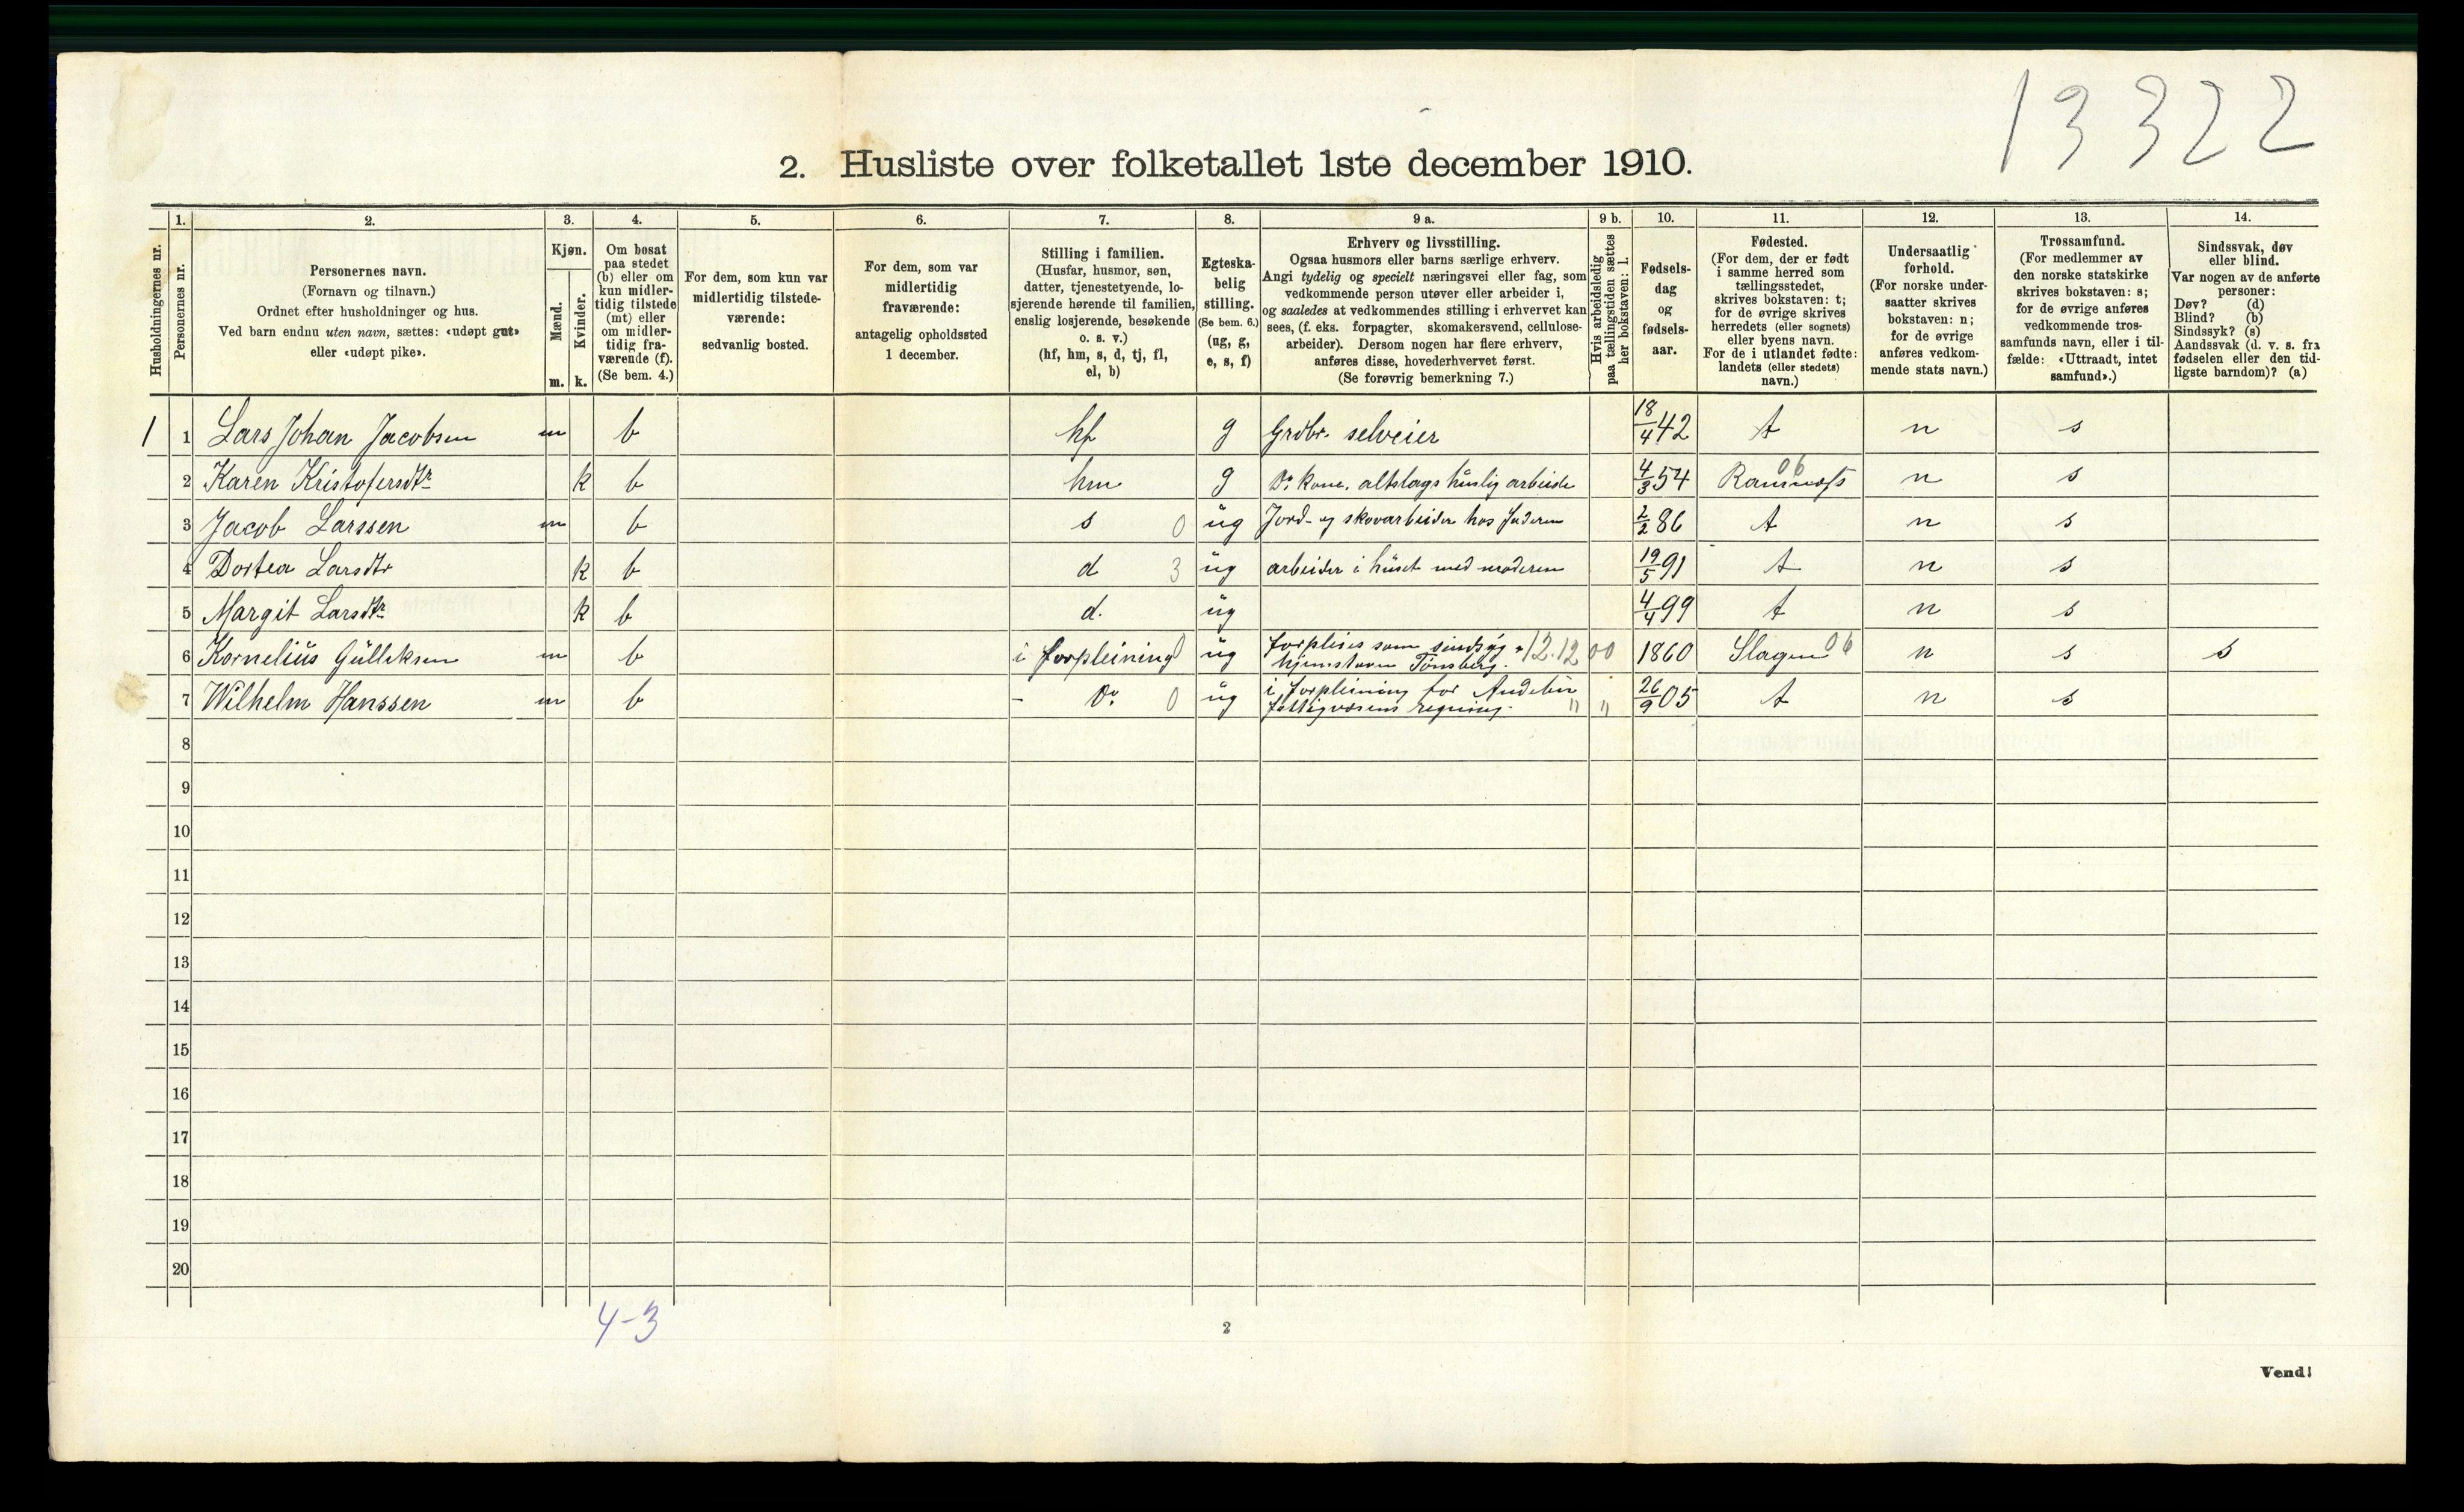 13322
2. Husliste over folketallet 1ste december 1910.
Husholdningernes nr.
1.
Personernes nr.
2.
Personernes navn.
(Fornavn og tilnavn.)
Ordnet efter husholdninger og hus.
Ved barn endnu uten navn, sættes: «udøpt gut»
eller «udøpt pike».
3.
Kjøn.
Mænd.
Kvinder.
m. k.
4.
Om bosat
paa stedet
(b) eller om
kun midler-
tidig tilstede
(mt) eller
om midler-
tidig fra-
værende (f).
(Se bem. 4.)
5.
For dem, som kun var
midlertidig tilstede-
værende:
sedvanlig bosted.
6.
For dem, som var
midlertidig
fraværende:
antagelig opholdssted
1 december.
7.
Stilling i familien.
(Husfar, husmor, søn,
datter, tjenestetyende, lo-
sjerende hørende til familien,
enslig losjerende, besøkende
o. s. v.)
(hf, hm, s, d, tj, fl,
el, b)
8.
Egteska-
belig
stilling.
(Se bem. 6.)
(ug, g,
e, s, f)
9 a.
Erhverv og livsstilling.
Ogsaa husmors eller barns særlige erhverv.
Angi tydelig og specielt næringsvei eller fag, som
vedkommende person utøver eller arbeider i,
og saaledes at vedkommendes stilling i erhvervet kan
sees, (f. eks. forpagter, skomakersvend, cellulose-
arbeider). Dersom nogen har flere erhverv,
anføres disse, hovederhvervet først.
(Se forøvrig bemerkning 7.)
9 b.
Hvis arbeidsledig
paa tællingstiden sættes
her bokstaven: l.
10.
Fødsels-
dag
og
fødsels-
aar.
11.
Fødested.
(For dem, der er født
i samme herred som
tællingsstedet,
skrives bokstaven: t;
for de øvrige skrives
herredets (eller sognets)
eller byens navn.
For de i utlandet fødte:
landets (eller stedets)
navn.)
12.
Undersaatlig
forhold.
(For norske under-
saatter skrives
bokstaven: n;
for de øvrige
anføres vedkom-
mende stats navn.)
13.
Trossamfund.
(For medlemmer av
den norske statskirke
skrives bokstaven: s;
for de øvrige anføres
vedkommende tros-
samfunds navn, eller i til-
fælde: «Uttraadt, intet
samfund».)
14.
Sindssvak, døv
eller blind.
Var nogen av de anførte
personer:
Døv? (d)
Blind? (b)
Sindssyk? (s)
Aandssvak (d. v. s. fra
fødselen eller den tid-
ligste barndom)? (a)
1 1 Lars Johan Jacobsen m b hf g Grdbr. selveier 18/4 42 t n s
2 Karen Kristofersdtr k b hm g Do kone. altslags huslig arbeide 4/3 54 Ramnæs 06 n s
3 Jacob Larssen m b s 0 ug Jord- og skovarbeider hos faderen 2/2 86 t n s
4 Dortea Larsdtr k b d 3 ug arbeider i huset med moderen 19/5 91 t n s
5 Margit Larsdtr k b d. ug 4/4 99 t n s
6 Kornelius Gulliksen m b i forpleining 0 ug forpleies som sindsyg 12.12 00 1860 Slagen 06 n s s
hjemstavn Tønsberg.
7 Wilhelm Hanssen m b - Do 0 ug i forpleining for Andebu " 26/9 05 t n s
fattigvæsens regning. "
8
9
10
11
12
13
14
15
16
17
18
19
20
4-3
2
Vend!